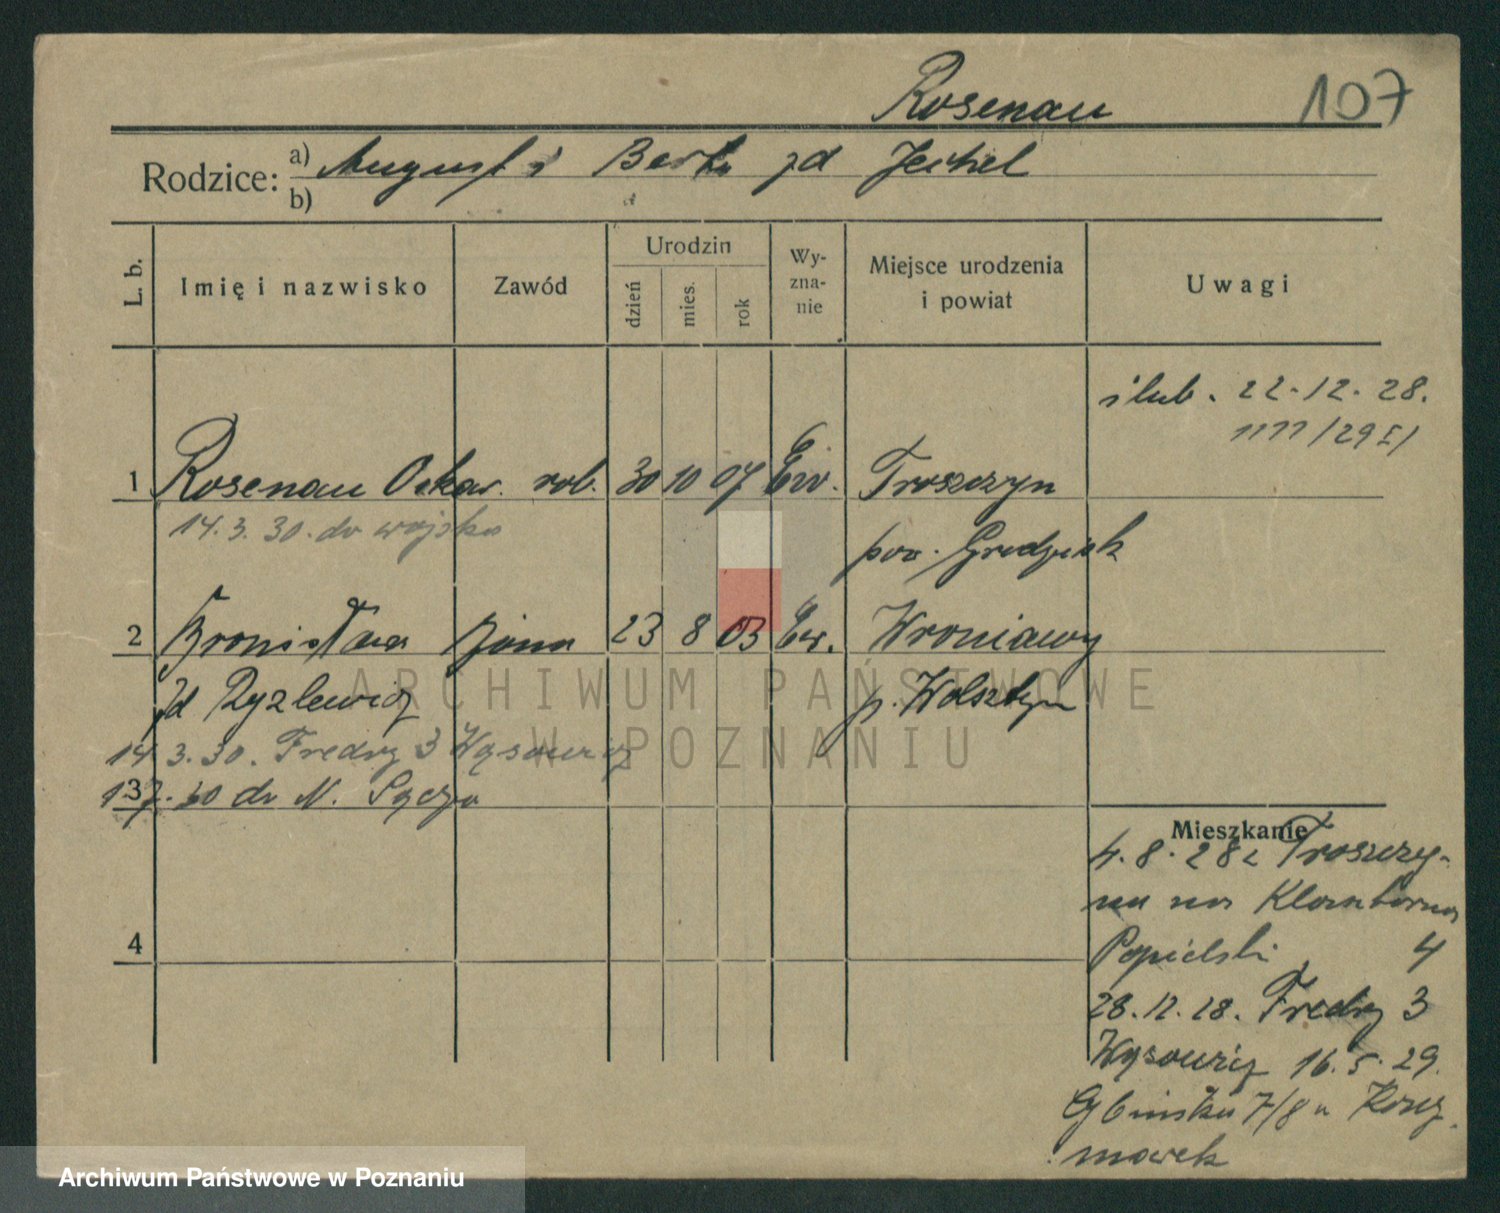 Rosenau
107
Rodzice: a) August i Berta zd Jeckel
b)
L. b.
Imię i nazwisko
Zawód
Urodzin
dzień
mies.
rok
Wy-
zna-
nie
Miejsce urodzenia
i powiat
Uwagi
ślub. 22.12.28.
1111/29 I/
1 Rosenau Oskar. rob. 30 10 07 Ew. Troszczyn
14.3.30. do wojska
pow. Grodzisk
2 Bronisława żona 23 8 03 Ew. Wroniawy
zd Ryzlewicz p. Wolsztyn
14.3.30. Fredry 3
3
do N. Sącza
Mieszkanie
4.8.28 z Troszczy-
na na
4
Popielski 4
28.12.28. Fredry 3
16.5.29.
7/8 u
ARCHIWUM PAŃSTWOWE
W POZNANIU
Archiwum Państwowe w Poznaniu